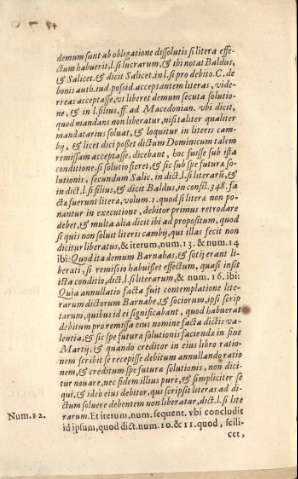 demum sunt ab obligatione dissolutis si litera effe-
ctum habuerit, l. si lucrarum, & ibi notat Baldus,
& Salicet. & dicit Salicet. in l. si pro debito. C. de
bonis auth. iud. posid. acceptantem literas, vide-
re eas acceptasse, vt liberet demum secuta solutio-
ne, & in l. filius, ff. ad Macedonian. vbi dicit,
quod mandans non liberatur, nisi taliter qualiter
mandatarius soluat, & loquitur in literis cam-
bij, & licet dici posset dictum Dominicum talem
remissam acceptasse, dicebant, hoc fuisse sub ista
conditione, si solutio fieret, & sic sub spe futura so-
lutionis, secundum Salic. in dict. l. si literarū, &
in dict. l. si filius, & dicit Baldus, in consil. 348. fa
cta fuerunt litera, volum. 1. quod si litera non po-
nantur in executione, debitor primus retrodare
debet, & multa alia dicit ibi ad propositum, quod
si quis non soluit literis cambij, qui illas fecit non
dicitur liberatus, & iterum, num. 13. & num. 14
ibi: Quod ita demum Barnabas, & sotij erant li-
berati, si remissio habuisset effectum, quasi insit
ista conditio, dict. l. si literarum, & num. 16. ibi:
Quia annullatio facta fuit contemplatione lite-
rarum dictorum Barnabe, & sociorum, ipsi scrip
tarum, quibus id ei significabant, quod habuerat
debitum pro remissa eius nomine facta dictis va-
lentia, & sic spe futura solutionis facienda in fine
Martij, & quando creditor in eius libro ratio-
nem scribit se recepisse debitum annullando ratio
nem, & creditum spe futura solutionis, non dici-
tur nouare, nec fidem illius pure, & simpliciter se
qui, & ideo eius debitor, qui scripsit literas ad di-
ctum soluere debentem non liberatur, dict. l. si lite
Num. 12. rarum. Et iterum, num. sequent. vbi concludit
id ipsum, quod dict. num. 10. & 11. quod, scili-
cet,